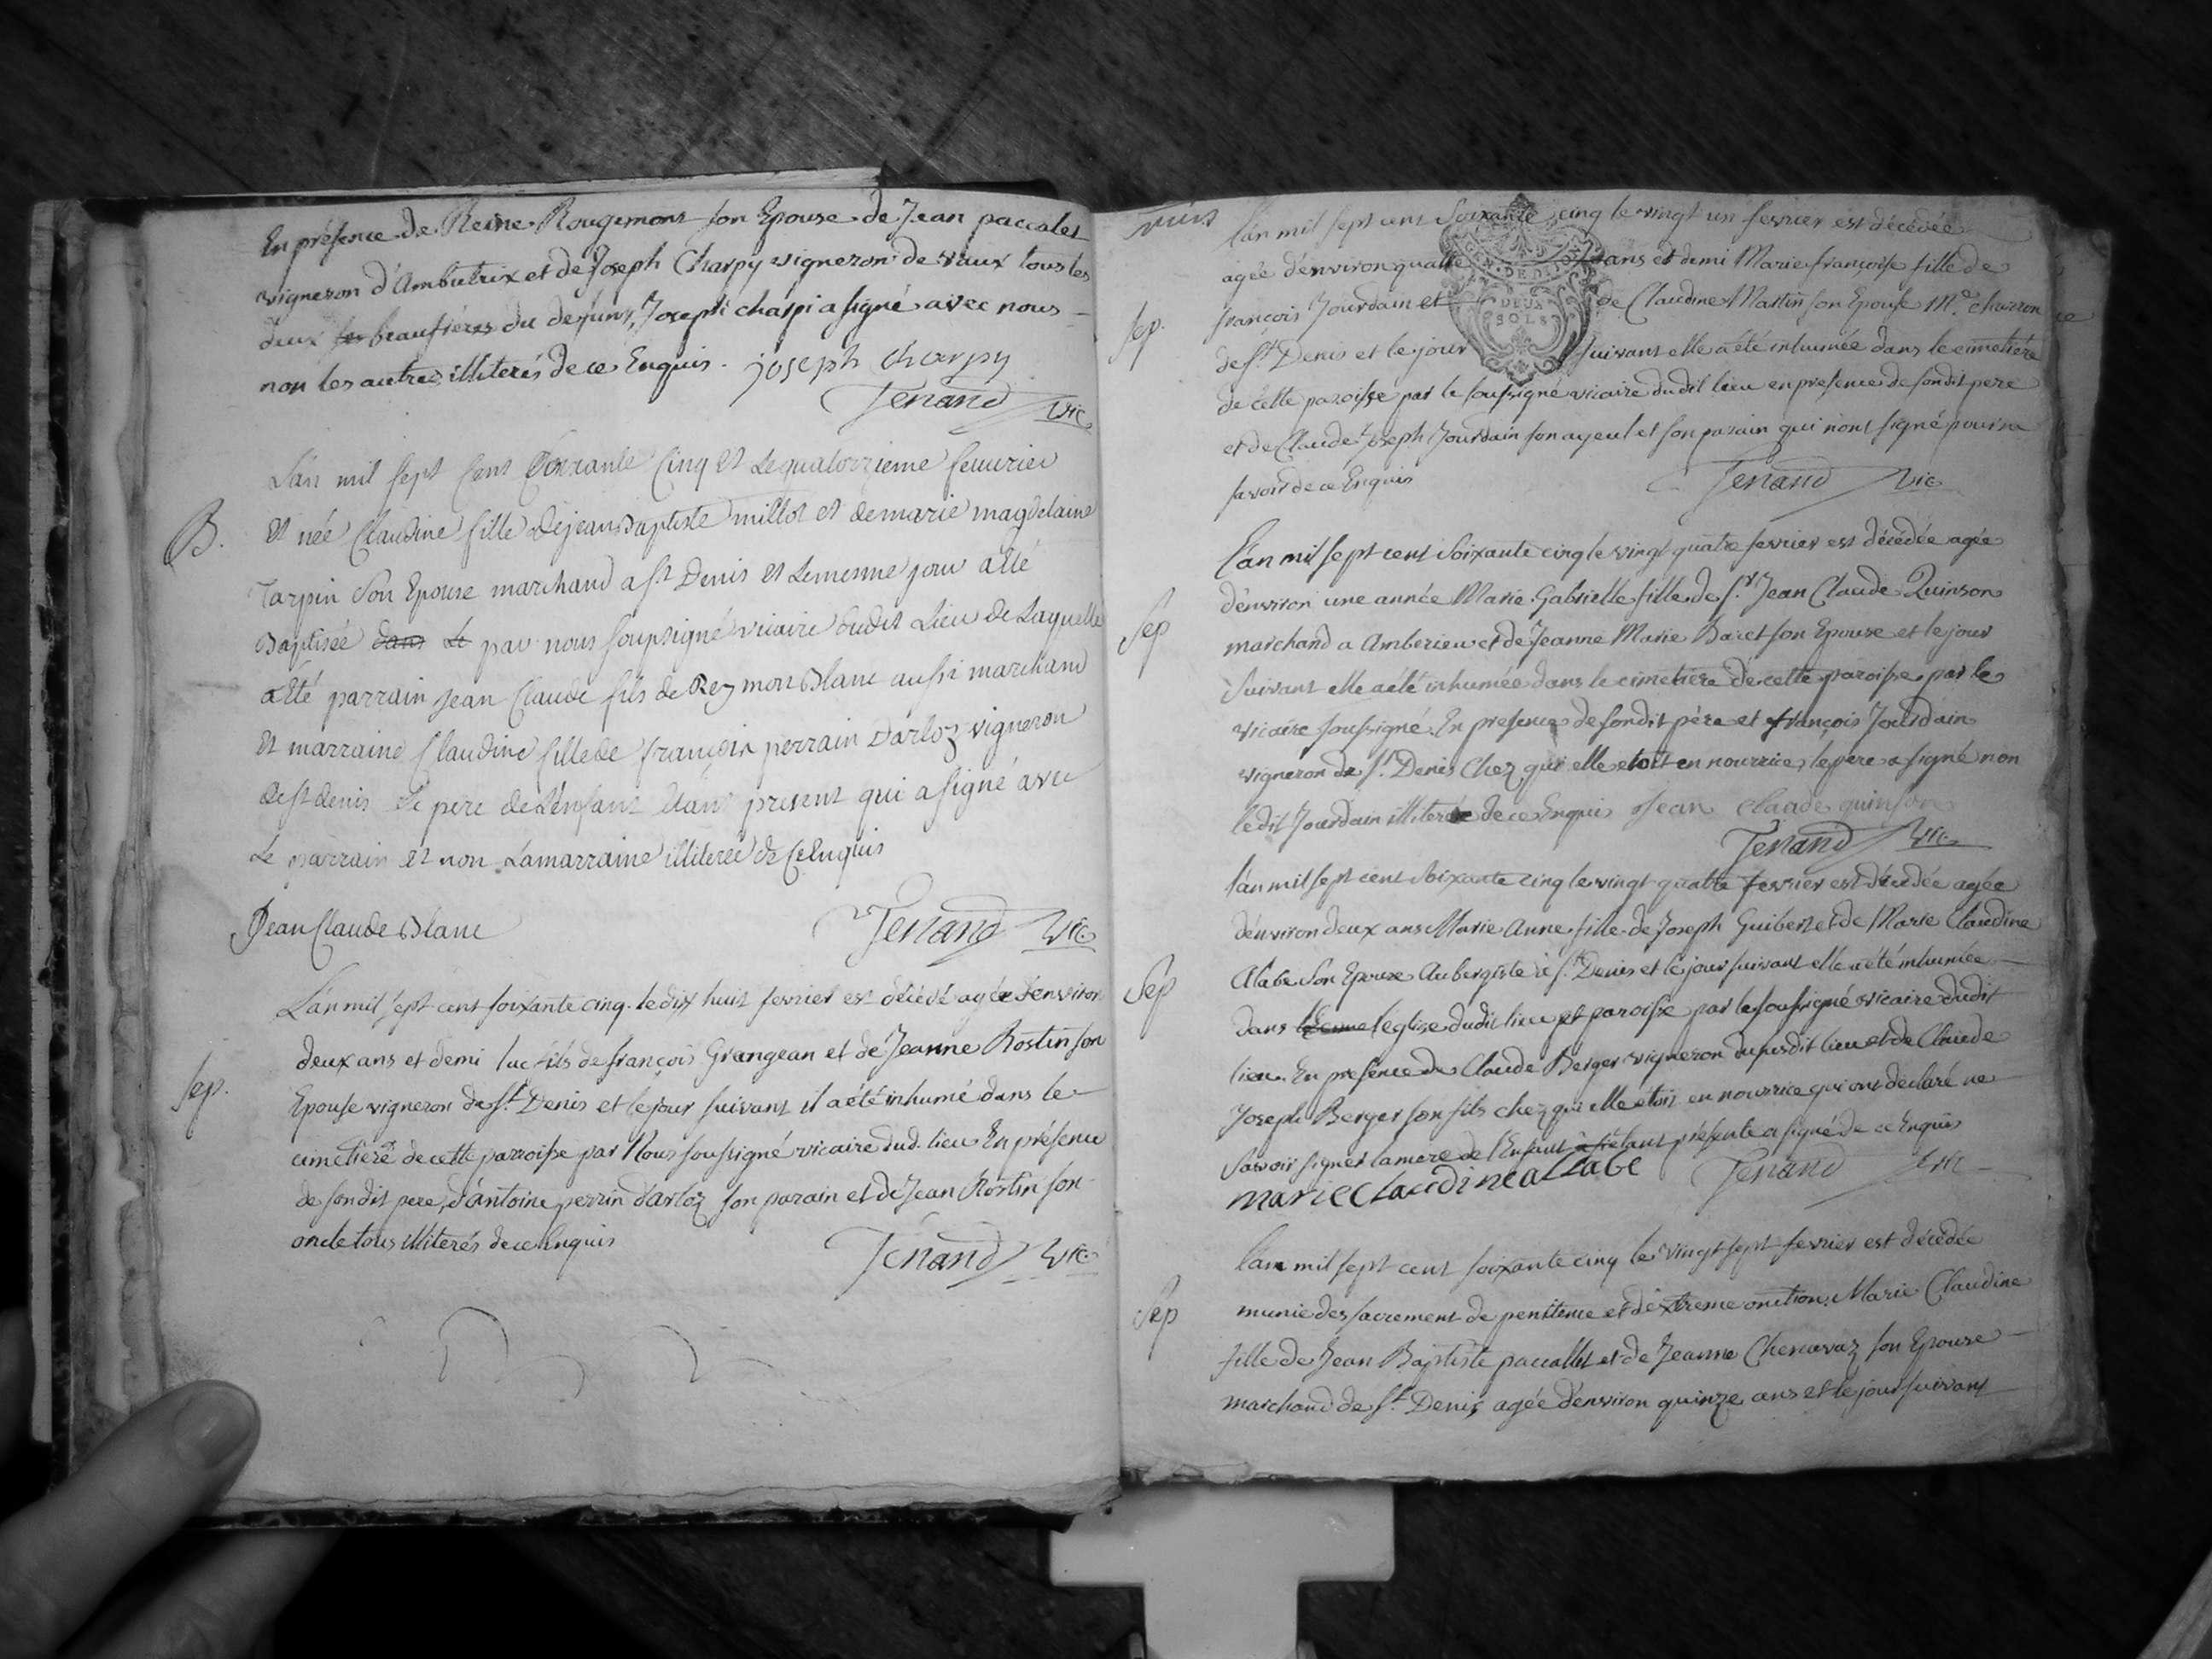 En présence de Reine Rougemont son Epouse de Jean paccalet
vigneron d'Ambutrix et de Joseph Charpy vigneron de vaux tous les
deux ses beaufréres du defunt, Joseph charpi a signé avec nous
non les autres illiterés de ce Enquis. joseph charpy
Tenand vic
L'án mil sept Cent Soixante Cinq et Le quatorzieme feuvrier
B. Et née Claudine fille de jean Baptiste millot et de marie magdelaine
Tarpin Son Epouse marchand a St Denis et Lemesme jour a été
Baptisée dans Le par nous soupsigné vicaire dudit Lieu de Laquelle
a été parrain jean Claude fils de Reymon Blanc aussi marchand
Et marraine Claudine fille de françois perrain Darloz vigneron
de st denis Le pere de L'enfant étant present qui a signé avec
Le parrain et non Lamarraine illiterée de Ce Enquis
Jean Claude Blanc Tenand Vic
L'án mil sept cent soixante cinq le dix huit fevrier est décédé agée d'environ
deux ans et demi luc fils de françois Grangean et de Jeanne Rostin son
Sep. Epouse vigneron de St Denis et le jour suivant il a été inhumé dans le
cimetiere de cette parroisse par Nous soussigné vicaire dud. lieu En présence
de son dit pere, d'Antoine perrin d'arloz son parain et de Jean Rostin son
oncle tous illiterés de ce Enquis
Tenand Vic
l'án mil sept cent Soixante cinq le vingt un fevrier est décédée
agée d'environ quatre ans et demi Marie françoise fille de
Sep. françois Jourdain et de Claudine Martin son Epouse Md. charron
GEN. DE DIJON
DEUX
SOLS
de St Denis et le jour suivant elle a été inhumée dans le cimetiére
de cette paroisse par le soussigné vicaire dudit lieu en presence de sondit pere
et de Claude Joseph Jourdain son ayeul et son parain qui n'ont signé pour ne
savoir de ce Enquis Tenand Vic
l'án mil sept cent Soixante cinq le vingt quatre fevrier est décédée agée
d'environ une année Marie Gabrielle fille de Sr Jean Claude Quinson
Sep marchand a Amberieu et de Jeanne Marie Baret son Epouse et le jour
Suivant elle a été inhumée dans le cimetiére de cette paroisse par le
vicaire soussigné. En presence de son dit pére et françois Jourdain
vigneron de St Denis Chez qui elle etoit en nourrice, le pere a signé non
le dit Jourdain illiteré de ce Enquis Jean claade quinson
Tenand Vic
l'án mil sept cent Soixante cinq le vingt quatre fevrier est décédée agée
d'environ deux ans Marie Anne fille de Joseph Guibert et de Marie Claudine
Sep Alabe Son Epouse Aubergiste à St Denis et le jour suivant elle a été inhumée
dans l'église dudit lieu et paroisse par le soussigné vicaire dudit
lieu. En presence de Claude Berger vigneron du susdit lieu et de Claude
Joseph Berger son fils chez qui elle etoit en nourrice qui ont declaré ne
Savoir signer la mere de l'Enfant étant présente a signé de ce Enquis
marie Claudine allabe Tenand Vic
l'án mil sept cent soixante cinq le vingt sept fevrier est décédée
Sep munie des sacrement de penitence et d'extreme onction. Marie Claudine
fille de Jean Baptiste paccallet et de Jeanne Chenavaz son Epouse
marchand de St Denis agée d'environ quinze ans et le jour suivant